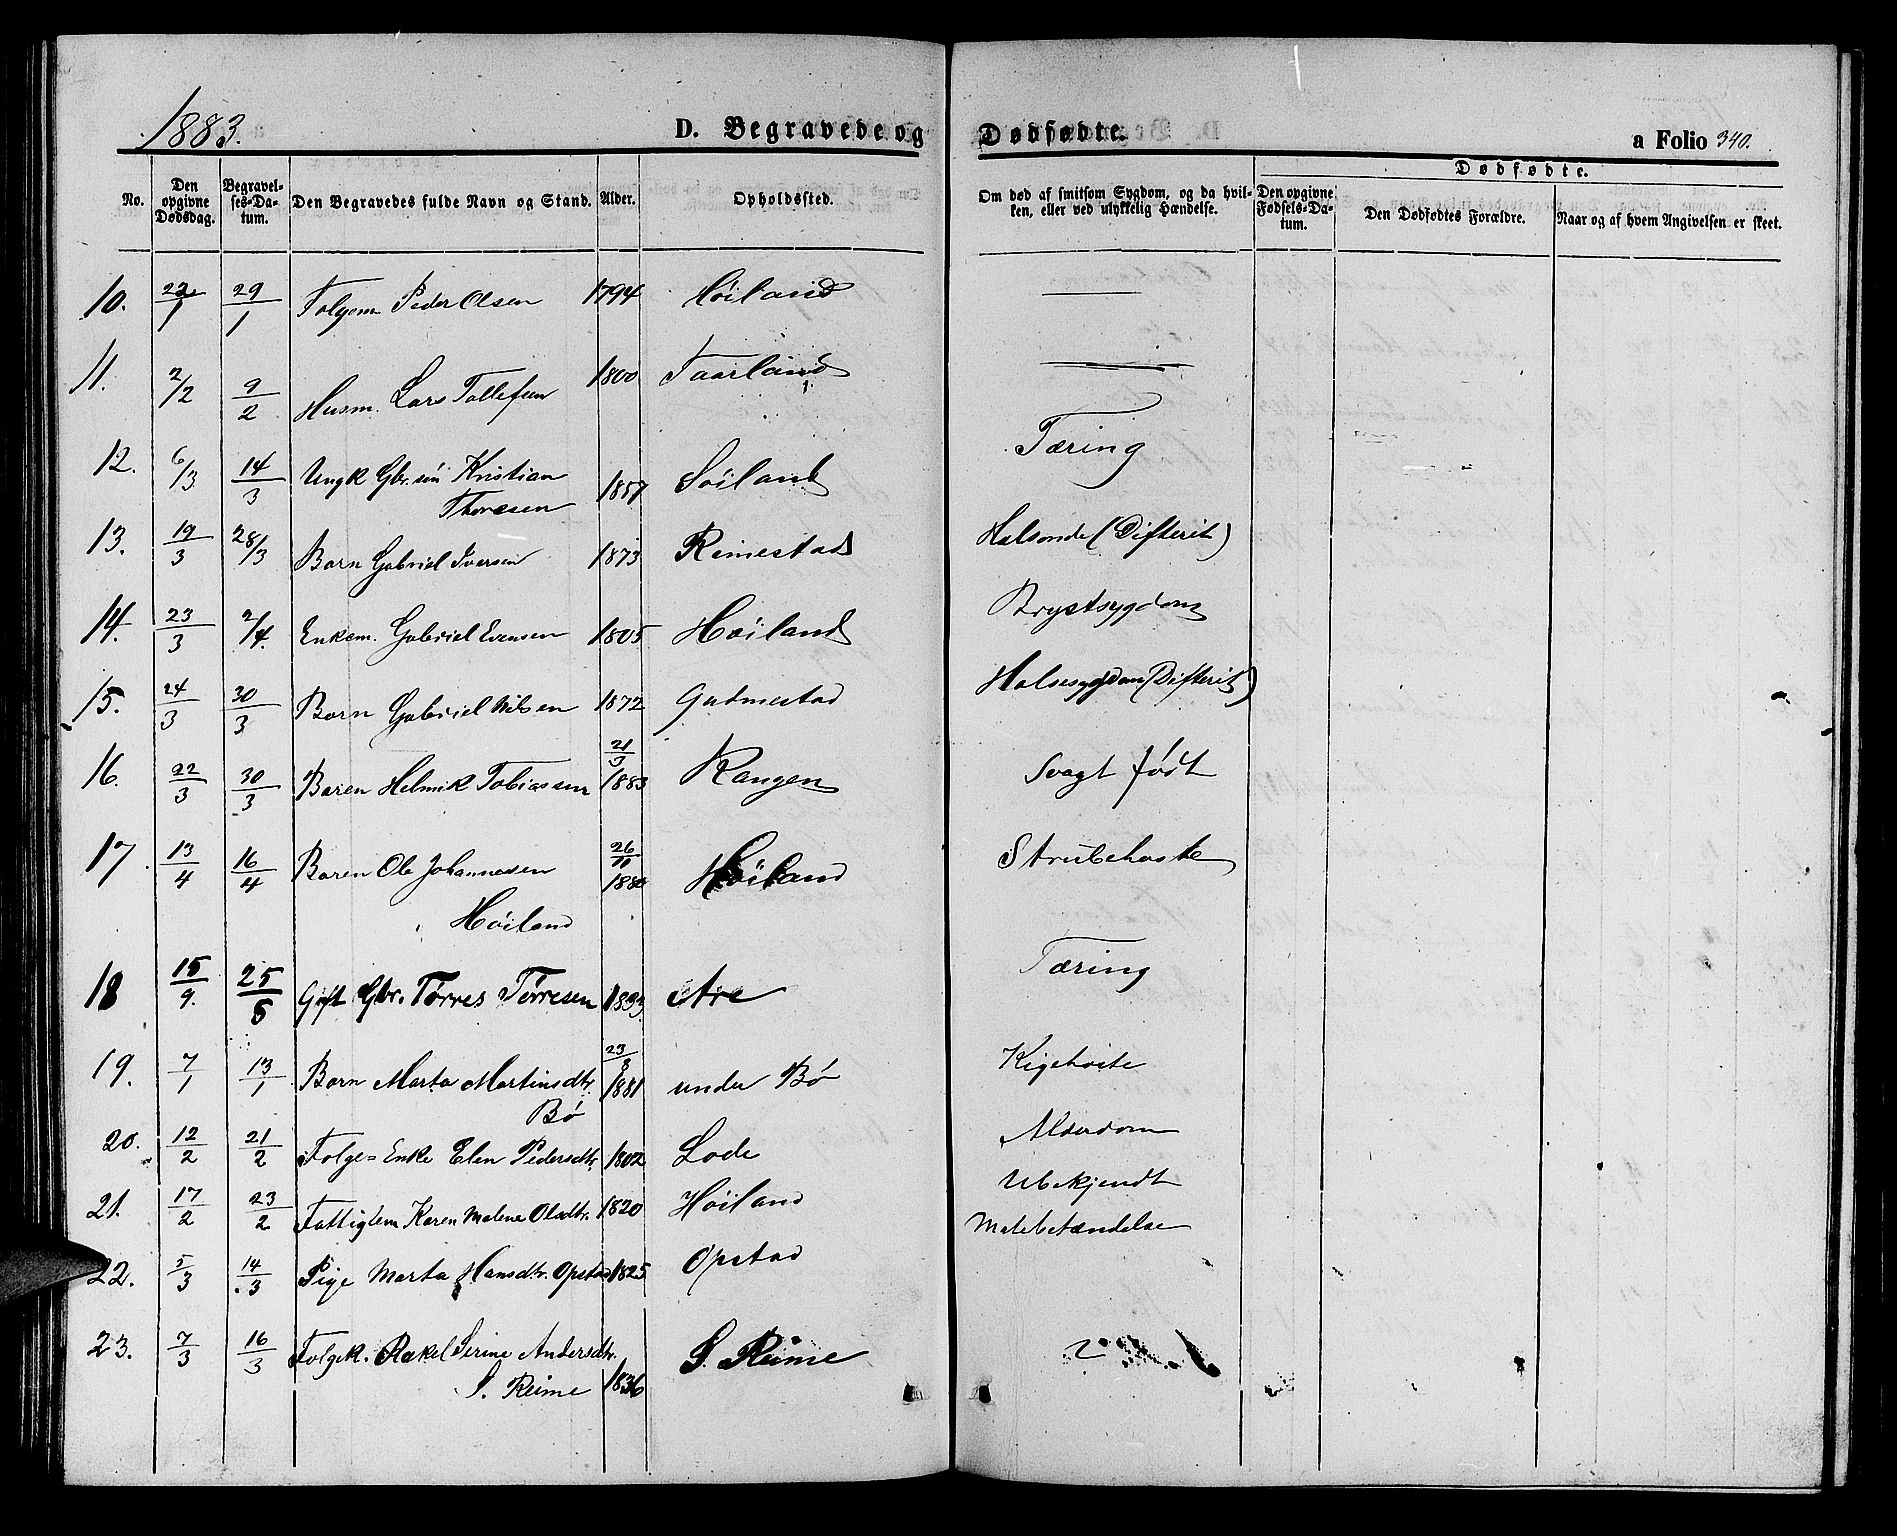 1883. D. Begravede og Dødfødte. a Folio 340.
Dødfødte.
No. Den opgivne Dødsdag. Begravelses-Datum. Den Begravedes fulde Navn og Stand. Alder. Opholdssted. Om død af smitsom Sygdom, og da hvilken, eller ved ulykkelig Hændelse. Den opgivne Fødsels-Datum. Den Dødfødtes Forældre. Naar og af hvem Angivelsen er skeet.
10. 22/1 29/1 Folgem. Peder Olsen 1794 Höiland —
11. 2/2 9/2 Husm. Lars Tollefsen 1800 Taarland —
12. 6/3 14/3 Ungk Gbr. sön Kristian 1857 Söiland Tæring
Thoresen
13. 19/3 28/3 Barn Gabriel Iversen 1873 Reimestad Halsonde (Difterit)
14. 23/3 2/4. Enkem. Gabriel Evensen 1805 Höiland Brystsygdom
15. 24/3 30/3 Barn Gabriel Nilsen 1872 Gudmestad Halsesygdom (Difterit)
16. 22/3 30/3 Barn Helmik Tobiassen 21/3 1883 Kangen Svagt født
17. 13/4 16/4 Barn Ole Johannesen 26/11 1880 Höiland Strubehoste
Höiland
18 15/9. 25/5 Gift Gbr. Tørres Tørresen 1833 Are Tæring
19. 7/1 13/1 Barn Marta Martinsdtr. 23/8 1881 under Bø Kigehoste
Bø
20. 12/2 21/2 Folge-Enke Elen Pedersdtr. 1802 Lode Alderdom
21. 17/2 23/2 Fattiglem Karen Malene Olsdtr. 1820 Höiland Ubekjendt
22. 5/3 14/3 Pige Marta Hansdtr. Opstad 1825 Opstad Mavebetændelse
23. 7/3 16/3 Folgek. Rakel Serine Andersdtr. 1836 S. Reime
S. Reime